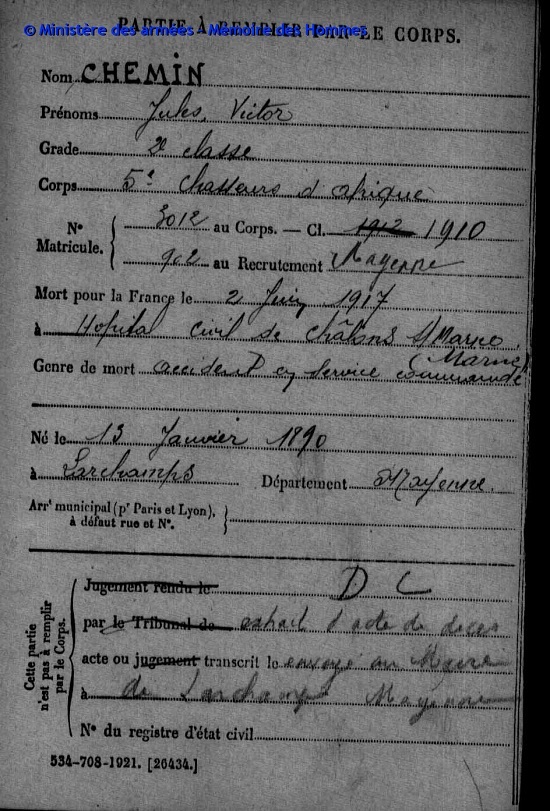 PARTIE À REMPLIR PAR LE CORPS.
© Ministère des armées - Mémoire des Hommes
Nom CHEMIN
Prénoms Jules, Victor
Grade 2e classe
Corps 5e Chasseurs d'afrique
N° Matricule. 3012 au Corps. — Cl. 1912 1910
902 au Recrutement Mayenne
Mort pour la France le 2 Juin 1917
à Hopital civil de Châlons s/Marne
(Marne)
Genre de mort accident en service commandé
Né le 13 Janvier 1890
à Larchamps Département Mayenne.
Arrt municipal (pr Paris et Lyon),
à défaut rue et N°.
Cette partie n'est pas à remplir par le Corps.
Jugement rendu le D C
par le Tribunal de extrait d'acte de décès
acte ou jugement transcrit le envoyé au Maire
à de Larchamp Mayenne
N° du registre d'état civil
534-708-1921. [26434.]